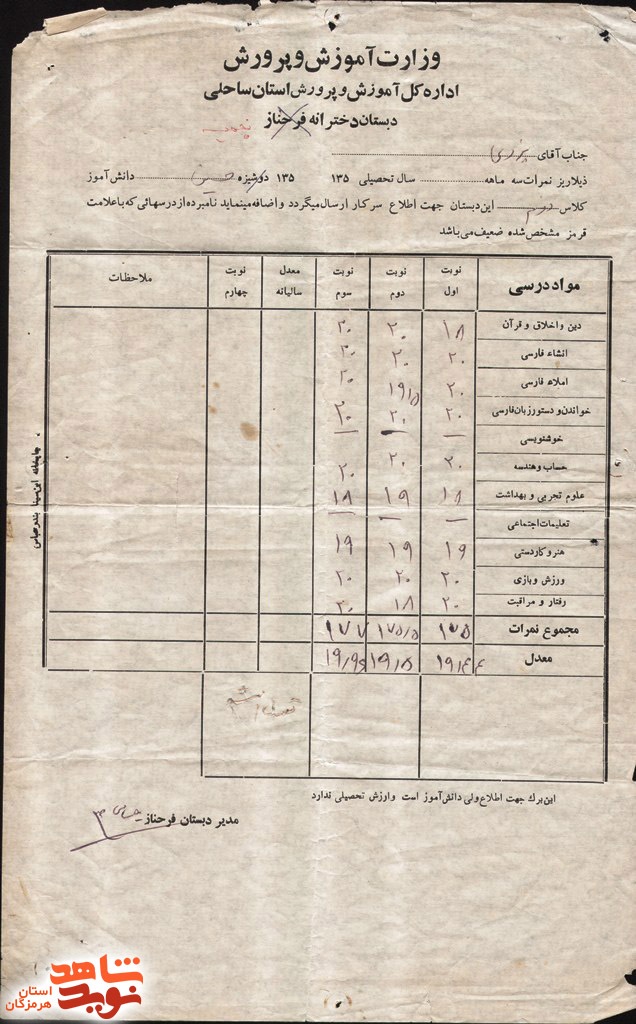 وزارت آموزش و پرورش
اداره کل آموزش و پرورش استان ساحلی
دبستان دخترانه فرحناز
جناب آقای
ذیلا ریز نمرات سه ماهه سال تحصیلی ۱۳۵ ۱۳۵ دوشیزه حسین دانش آموز
کلاس دوم این دبستان جهت اطلاع سرکار ارسال میگردد و اضافه مینماید نامبرده از درسهائی که با علامت
قرمز مشخص شده ضعیف می باشد
مواد درسی نوبت اول نوبت دوم نوبت سوم معدل سالیانه نوبت چهارم ملاحظات
دین و اخلاق و قرآن ۱۸ ۲۰ ۲۰
انشاء فارسی ۲۰ ۲۰ ۲۰
املاء فارسی ۲۰ ۱۹/۵ ۲۰
خواندن و دستور زبان فارسی ۲۰ ۲۰ ۲۰
خوشنویسی — — —
حساب و هندسه ۲۰ ۲۰ ۲۰
علوم تجربی و بهداشت ۱۸ ۱۹ ۱۸
تعلیمات اجتماعی — — —
هنر و کاردستی ۱۹ ۱۹ ۱۹
ورزش و بازی ۲۰ ۲۰ ۲۰
رفتار و مراقبت ۲۰ ۱۸ ۲۰
مجموع نمرات ۱۷۵ ۱۷۵/۵ ۱۷۷
معدل ۱۹/۴۴ ۱۹/۵
این برك جهت اطلاع ولی دانش آموز است و ارزش تحصیلی ندارد
مدیر دبستان فرحناز
چاپخانه ابن سینا بندرعباس
نوید شاهد
استان
هرمزگان